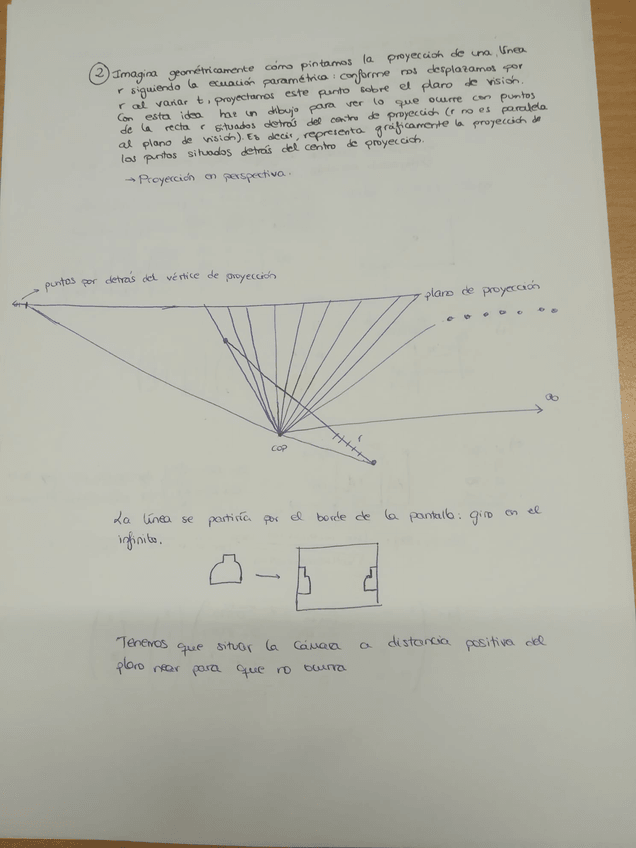 ② Imagina geométricamente cómo pintamos la proyección de una línea
r siguiendo la ecuación paramétrica: conforme nos desplazamos por
r al variar t, proyectamos este punto sobre el plano de visión.
Con esta idea haz un dibujo para ver lo que ocurre con puntos
de la recta r situados detrás del centro de proyección (r no es paralela
al plano de visión). Es decir, representa gráficamente la proyección de
los puntos situados detrás del centro de proyección.
→ Proyección en perspectiva.
puntos por detrás del vértice de proyección
plano de proyección
∞
r
COP
La línea se partiría por el borde de la pantalla: giro en el
infinito.
Tenemos que situar la cámara a distancia positiva del
plano near para que no ocurra